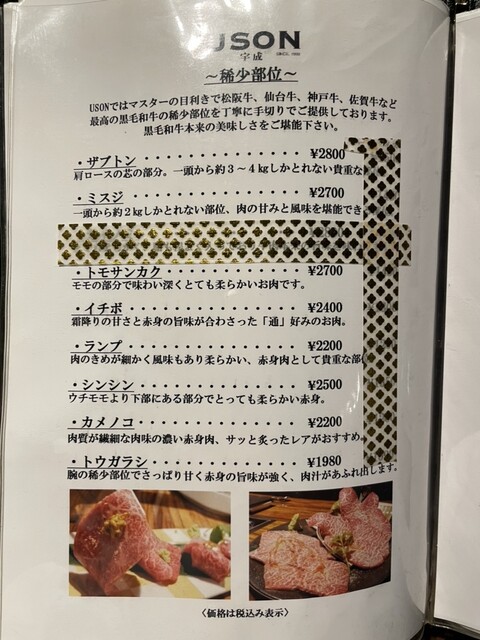 USON
宇成
SINCE 1988
～稀少部位～
USONではマスターの目利きで松阪牛、仙台牛、神戸牛、佐賀牛など
最高の黒毛和牛の稀少部位を丁寧に手切りでご提供しております。
黒毛和牛本来の美味しさをご堪能下さい。
・ザブトン・・・・・・・・・・・・・・・¥2800
肩ロースの芯の部分。一頭から約３～４㎏しかとれない貴重な
・ミスジ・・・・・・・・・・・・・・・・¥2700
一頭から約２㎏しかとれない部位、肉の甘みと風味を堪能でき
・トモサンカク・・・・・・・・・・・・・¥2700
モモの部分で味わい深くとても柔らかいお肉です。
・イチボ・・・・・・・・・・・・・・・・¥2400
霜降りの甘さと赤身の旨味が合わさった「通」好みのお肉。
・ランプ・・・・・・・・・・・・・・・・¥2200
肉のきめが細かく風味もあり柔らかい、赤身肉として貴重な部
・シンシン・・・・・・・・・・・・・・・¥2500
ウチモモより下部にある部分でとっても柔らかい赤身。
・カメノコ・・・・・・・・・・・・・・・¥2200
肉質が繊細な肉味の濃い赤身肉、サッと炙ったレアがおすすめ。
・トウガラシ・・・・・・・・・・・・・・¥1980
腕の稀少部位でさっぱり甘く赤身の旨味が強く、肉汁があふれ出します。
〈価格は税込み表示〉